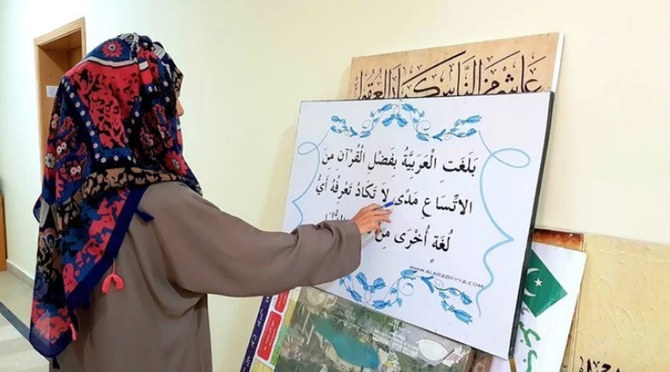 عَاشِرْ مِنَ النَّاسِ كِبَارَ العُقُولِ
بَلَغَتِ الْعَرَبِيَّةُ بِفَضْلِ الْقُرْآنِ مِنَ
الاتِّسَاعِ مَدًى لاَ تَكَادُ تَعْرِفُهُ أَيُّ
لُغَةٍ أُخْرَى مِنْ
WWW.ALARABIYYA.COM